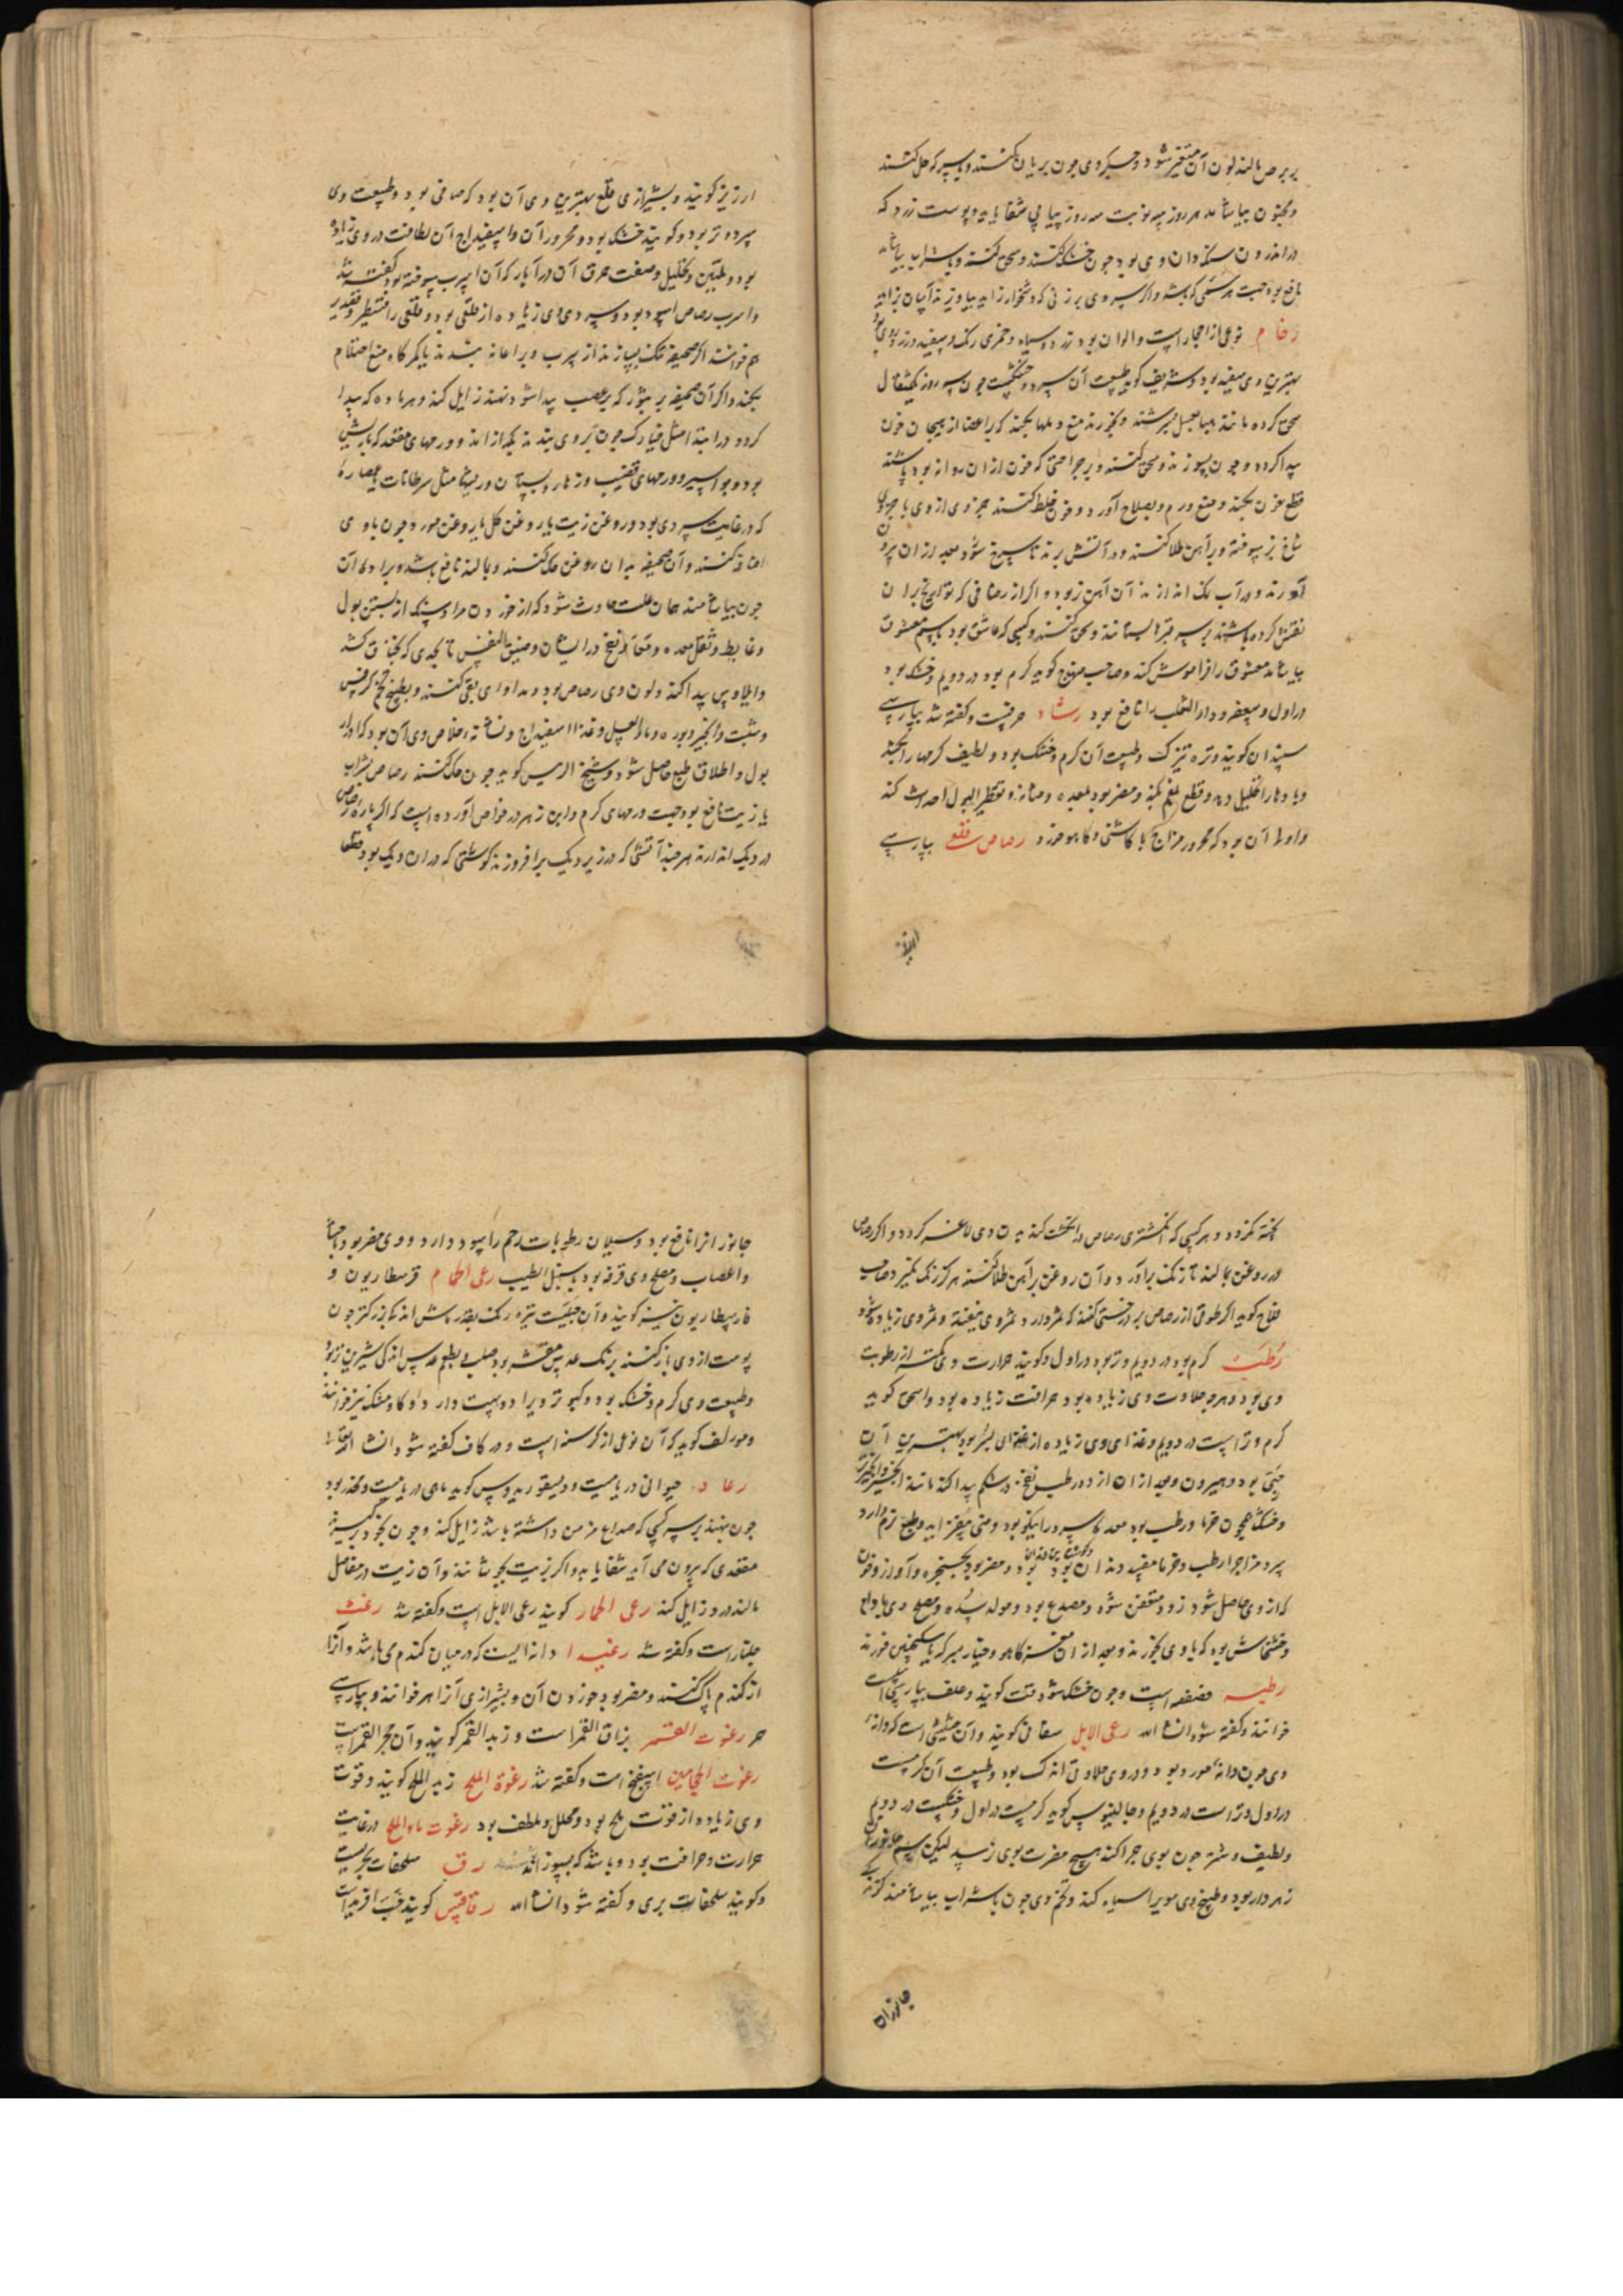 بر برص مالند لون آن متغیر شود و جگر وی چون بریان کنند و با سرکه حل کنند
و مجنون بیاشامد هر روز سه نوبت سه روز پیاپی شفا یابد و پوست زرد که
در اندرون سنگدان وی بود چون خشک کنند و سحق کنند و با شراب بیاشامند
نافع بود جهت هر سمی که باشد و اگر سر وی بر زنی که دشخوار زاید بیاویزند آسان بزاید
رخام نوعی از احجار است و الوان بود زرد و سیاه و خمری رنگ و سفید و زرزوری بود
بهترین وی سفید بود و شریف گوید طبیعت آن سرد و خشکست چون سه روز یکمثقال
سحق کرده مانند هبا بعسل بسرشند و بخورند منع دملها بکند که بر اعضا از هیجان خون
پیدا گردد و چون بسوزند و سحق کنند و بر جراحتی که خون از آن روانه بود پاشند
قطع خون بکند و منع ورم و بصلاح آورد و چون خلط کنند جزوی از وی با جزوی
شاخ بز سوخته و بر آهن طلا کنند و در آتش برند تا سرخ شود بعد از آن بیرون
آورند و در آب نمک اندازند آن آهن نر بود و اگر از رخامی که تواریخ بر آن
نقش کرده باشند بر سر قبر بستانند و سحق کنند و کسی که عاشق بود باسم معشوق
بیاشامد معشوق را فراموش کند و صاحب منهاج گوید گرم بود در دویم و خشک بود
در اول و سعفه و داء الثعلب را نافع بود رشاد حرفست و گفته شد بپارسی
سپندان گویند و تره تیزک و طبیعت آن گرم و خشک بود و لطیف کرمها را بکشد
و بادها را تحلیل دهد و قطع بلغم بکند و مضر بود بمعده و مثانه و تقطیر البول احداث کند
و اولی آن بود که محرور مزاج با کاسنی و کاهو خورد رصاص قلعی بپارسی
ارزیز
ارزیز گویند و بشیرازی قلع بهترین وی آن بود که صافی بود و طبیعت وی
سرد و تر بود و گویند خشک بود و محرور آن و اسفیداج آن لطافت در وی زیاده
بود و تلیین و تحلیل و صفت حرق آن در آبار که آن اسرب سوخته بود گفته شد
و اسرب رصاص اسود بود و سردی وی زیاده از قلعی بود و قلعی را قسطیر و قصدیر
هم خوانند اگر صحیفه تنک بسازند از سرب و بر اعانه بندند یا بکمرگاه منع احتلام
بکند و اگر آن صحیفه بر بثور که بر عصب پیدا شود نهند زایل کند و هر ماده که پیدا
گردد در ابتدا مثل خیارک چون بر وی بندند بگدازاند و ورمهای مقعد که با ریش
بود و بواسیر و ورمهای قضیب و زهار و پستان و ریشها مثل سرطانات بعصاره
که در غایت سردی بود و روغن زیت یا روغن گل یا روغن مورد چون با وی
اضافه کنند و آن صحیفه بدان روغن حک کنند و بمالند نافع باشد و براده آن
چون بیاشامند همان علت حادث شود که از خوردن مرداسنگ از بستن بول
و غایط و ثقل معده و مقعد و نفخ در ایشان و ضیق النفس تا بحدی که بخناق کشد
و ایلاوس پیدا کند و لون وی رصاص بود و مداوای بقی کنند و بطبیخ تخم کرفس
و شبت و انجیر و بوره و ماء العسل و غذا اسفیداج و نشانه خلاص وی آن بود که ادرار
بول و اطلاق طبع حاصل شود و شیخ الرئیس گوید چون حک کنند رصاص بشراب
یا زیت نافع بود جهت ورمهای گرم و ابن زهر در خواص آورده است که اگر پاره رصاص
در دیک اندازند هر چند آتش که در زیر دیک برافروزند گوشتی که در آن دیک بود قطعا
پخته نگردد و هر کسی که انگشتری رصاص در انگشت کند بدن وی لاغر گردد و اگر رصاص
در روغن بمالند تا زنگ برآورد و آن روغن بر آهن طلا کنند هرگز زنگ نگیرد و صاحب
فلاح گوید اگر طوقی از رصاص بر درختی کنند که ثمر دارد ثمر وی نیفتد و ثمر وی زیاده شود
رطب گرم بود در دویم و تر بود در اول و گویند حرارت وی کمتر از رطوبت
وی بود و هرچه حلاوت وی زیاده بود حرافت زیاده بود و اسحق گوید
گرم و تر است در دویم و غذای وی زیاده از غذای بسر بود بهترین آن
جنی بود و هیرون و بعد از آن ازاد و رطب نفخ در شکم پیدا کند مانند انجیر و انجیر تر
و خشک همچون خرما و رطب بود معده سرد را نیکو بود و منی بیفزاید و طبع نرم دارد
سرد مزاج را رطب و خرما مفسد دندان و گوشت بن دندان بود و مضر بود بحنجره و آواز و خون
که از وی حاصل شود زود متعفن شود و مصدع بود و مولد سده و مصلح وی بادام
و خشخاش بود که با وی بخورند و بعد از آن مغز کاهو و خیار بسرکه یا سکنجبین خورند
رطبه فصفصه است و چون خشک شود قت گویند و علف بپارسی است
خوانند و گفته شود انشاء الله رعی الابل سفانی گویند و آن حشیشی است که دانه
وی چون دانه مورد بود و در وی حلاوتی اندک بود و طبیعت آن گرمست
در اول و تر است در دویم و جالینوس گوید گرمست در اول و خشکست در دویم
و لطیف و شتر چون بوی چرا کند هیچ مضرت بوی نرسد لیکن سم جانوران
زهردار بود و طبیخ وی مو را سیاه کند و تخم وی چون با شراب بیاشامند گزندگی
جانوران
جانوران را نافع بود و سیلان رطوبات رحم را سود دارد و وی مضر بود باحشا
و اعصاب و مصلح وی قرفه بود یا سنبل الطیب رعی الحمام قرسطاریون و
فارسطاریون نیز گویند و آن حبیست تیره رنگ بقدر ماش اندک بزرکتر چون
پوست از وی باز کنند برنک عدس مقشر بود صلب بطعم عدس اندکی شیرین تر بود
و طبیعت وی گرم و خشک بود و کبوتر ویرا دوست دارد و گاومشنگ نیز خوانند
و مولف گوید که آن نوعی از کرسنه است و در کاف گفته شود انشا الله تعالی
رعاد حیوانی دریاییست و دیسقوریدوس گوید ماهی دریاییست و مخدر بود
چون بنهند بر سر کسی که صداع مزمن داشته باشد زایل کند و چون بخود برگیرند
مقعدی که بیرون می آید شفا یابد و اگر بزیت بجوشانند و آن زیت در مفاصل
مالند درد زایل کند رعی الحمار گویند رعی الابل است و گفته شد رغث
جلنار است و گفته شد رغیدا دانه ایست که در میان گندم می باشد و آنرا
از گندم پاک کنند و مضر بود خوردن آن و بشیرازی آنرا هر خوانند و بپارسی
حر رغوت القمر بزاق القمر است و زبد القمر گویند و آن حجر القمر است
رغوت الحجامین اسفنج است و گفته شد رغوة الملح زبد الملح گویند و قوت
وی زیاده از قوت ملح بود و محلل و ملطف بود رغوت ماء الملح در غایت
حرارت و حرافت بود و باشد که بسوزاند رق سلحفات بحریست
و گویند سلحفات بری و گفته شود انشاء الله رقاقیس گویند خبب اقریدا است